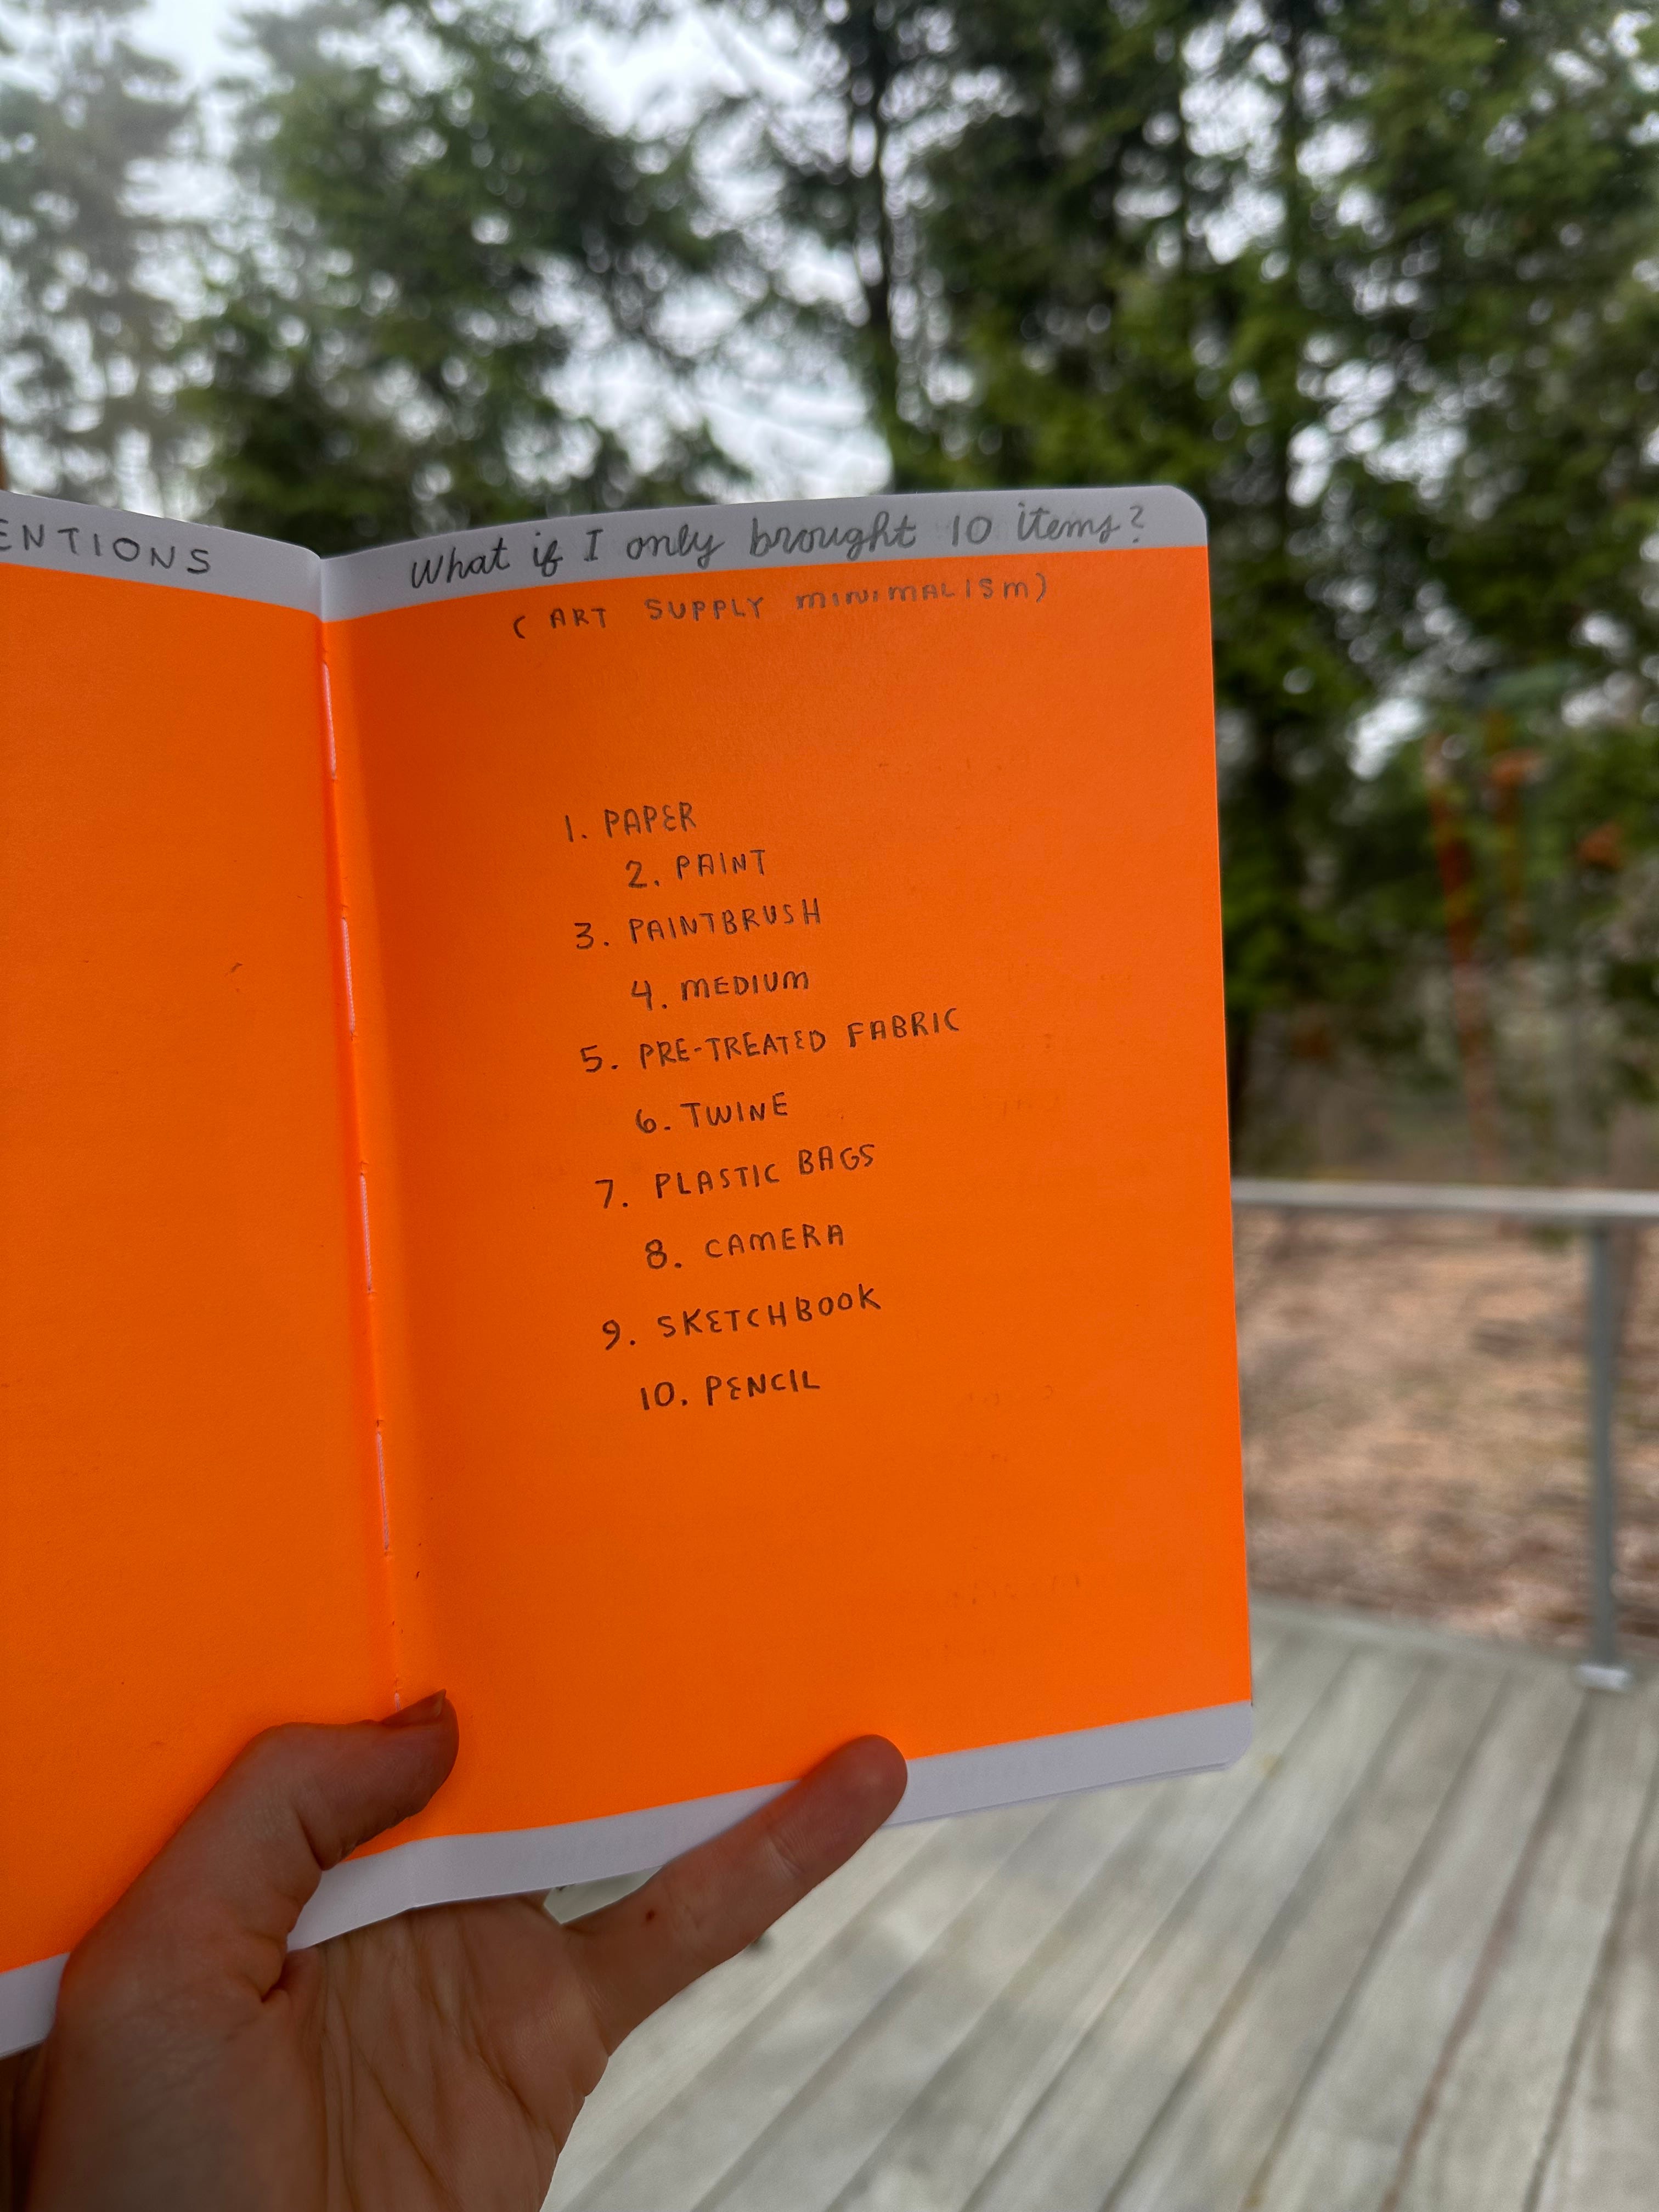 ENTIONS
What if I only brought 10 items?
( ART SUPPLY MINIMALISM)
1. PAPER
2. PAINT
3. PAINTBRUSH
4. MEDIUM
5. PRE-TREATED FABRIC
6. TWINE
7. PLASTIC BAGS
8. CAMERA
9. SKETCHBOOK
10. PENCIL